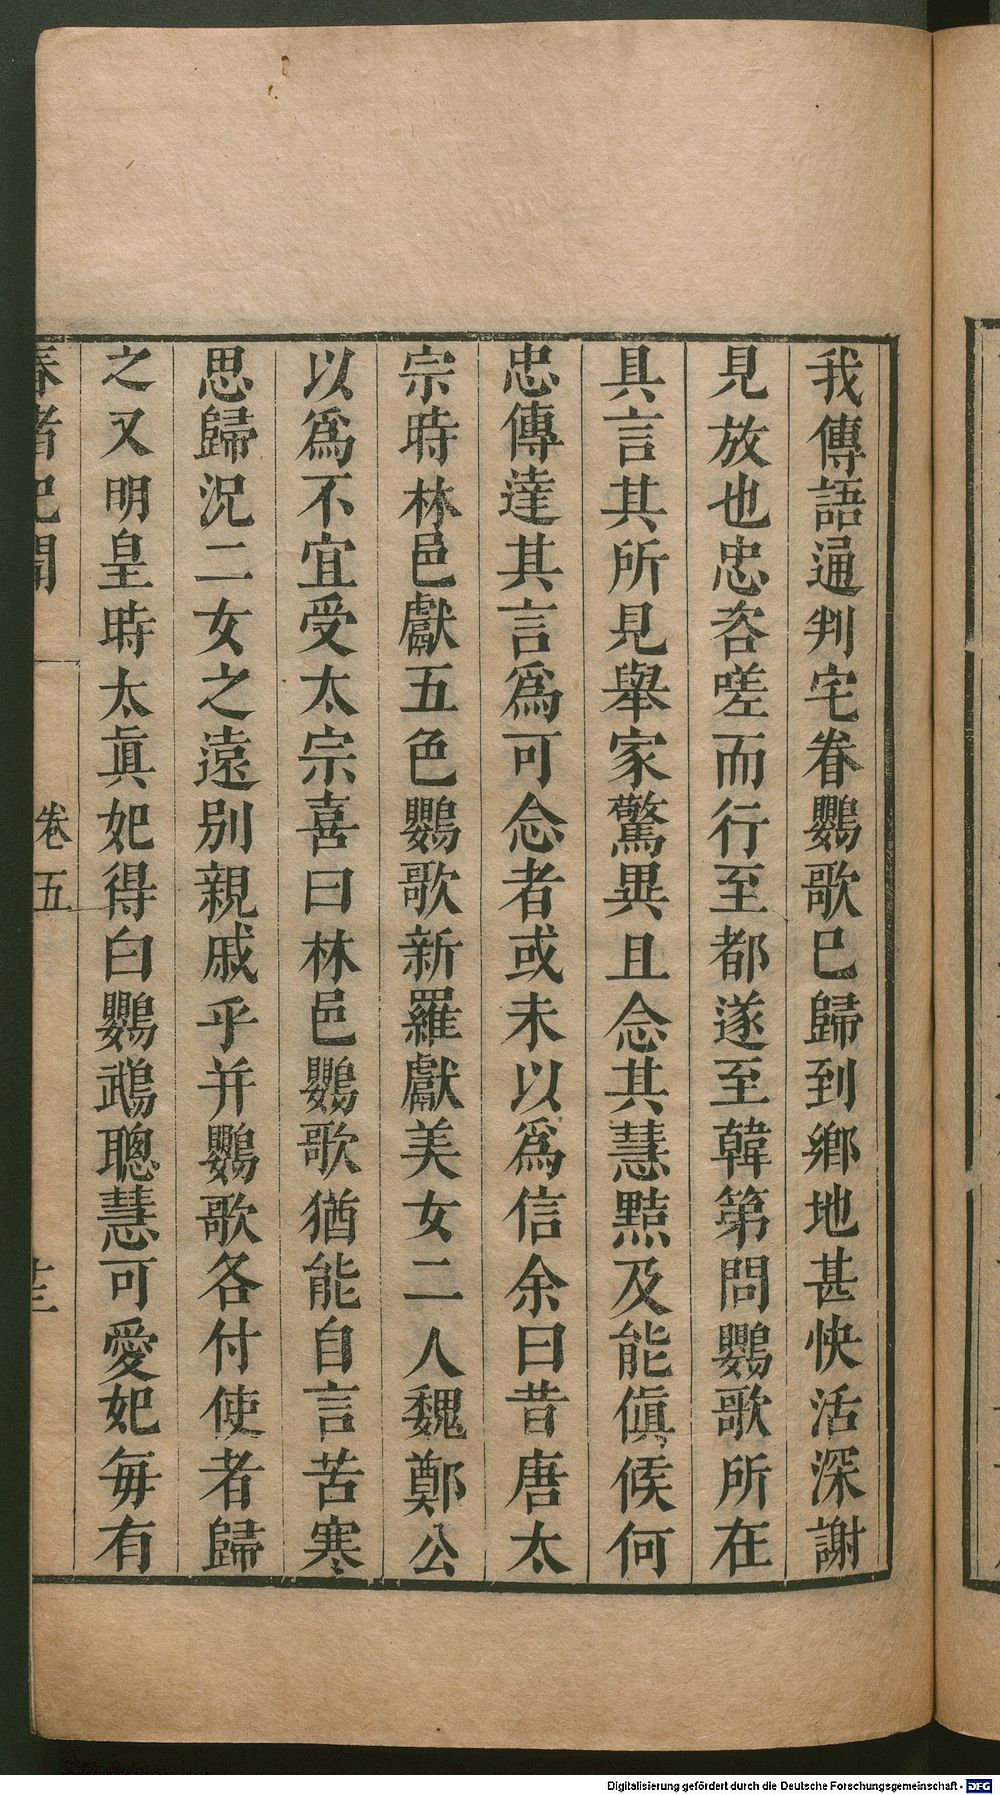 我傳語通判宅眷鸚歌已歸到鄉地甚快活深謝
見放也忠咨嗟而行至都遂至韓第問鸚歌所在
具言其所見舉家驚異且念其慧黠及能偵候何
忠傳達其言爲可念者或未以爲信余曰昔唐太
宗時林邑獻五色鸚歌新羅獻美女二人魏鄭公
以爲不宜受太宗喜曰林邑鸚歌猶能自言苦寒
思歸況二女之遠別親戚乎并鸚歌各付使者歸
之又明皇時太眞妃得白鸚鵡聰慧可愛妃每有
春渚紀聞 卷五
Digitalisierung gefördert durch die Deutsche Forschungsgemeinschaft - DFG